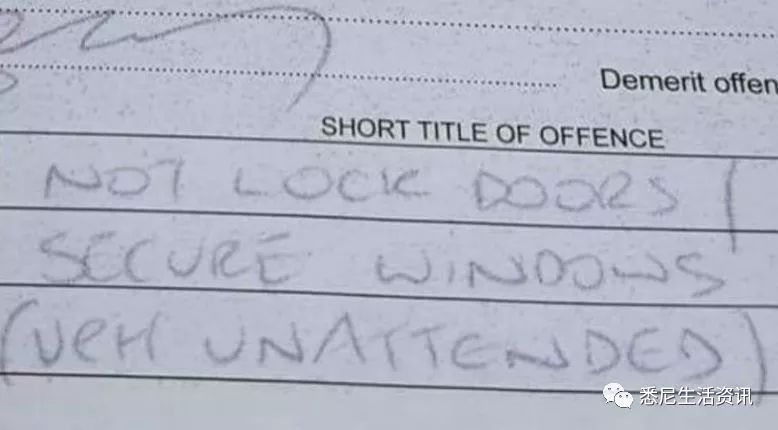 Demerit offen
SHORT TITLE OF OFFENCE
NOT LOCK DOORS/
SECURE WINDOWS
(VEH UNATTENDED)
悉尼生活资讯